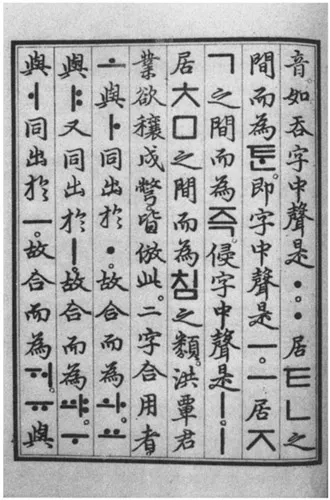 音如呑字中聲是ㆍ。ㆍ居ㅌㄴ之
間而為ᄐᆞᆫ。即字中聲是ㅡ。ㅡ居ㅈ
ㄱ之間而為즉。侵字中聲是ㅣ。ㅣ
居ㅊㅁ之間而為침之類。洪覃君
業欲穰戌彆皆倣此。二字合用者
ㅗ與ㅏ同出於ㆍ。故合而為ㅘ。ㅛ
與ㅑ又同出於ㅣ。故合而為ㆇ。ㅜ
與ㅓ同出於ㅡ。故合而為ㅝ。ㅠ與